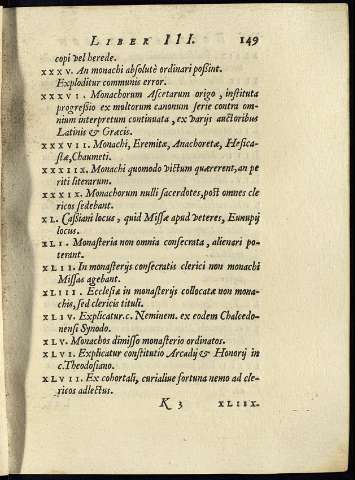 LIBER III. 149
copi vel herede.
XXXV. An monachi absolutè ordinari poßint.
Exploditur communis error.
XXXVI. Monachorum Ascetarum origo, instituta
progreßio ex multorum canonum serie contra om-
nium interpretum continuata, ex varijs auctoribus
Latinis & Græcis.
XXXVII. Monachi, Eremitæ, Anachoretæ, Hesica-
stæ, Chaumeti.
XXXIIX. Monachi quomodo victum quærerent, an pe
riti literarum.
XXXIX. Monachorum nulli sacerdotes, post omnes cle
ricos sedebant.
XL. Caßiani locus, quid Missæ apud veteres, Eunapij
locus.
XLI. Monasteria non omnia consecrata, alienari po-
terant.
XLII. In monasterijs consecratis clerici non monachi
Missas agebant.
XLIII. Ecclesiæ in monasterijs collocatæ non mona-
chis, sed clericis tituli.
XLIV. Explicatur.c. Neminem. ex eodem Chalcedo-
nensi Synodo.
XLV. Monachos dimisso monasterio ordinatos.
XLVI. Explicatur constitutio Arcadij & Honorij in
c.Theodosiano.
XLVII. Ex cohortali, curialiue fortuna nemo ad cle-
ricos adlectus.
K 3 XLIIX.